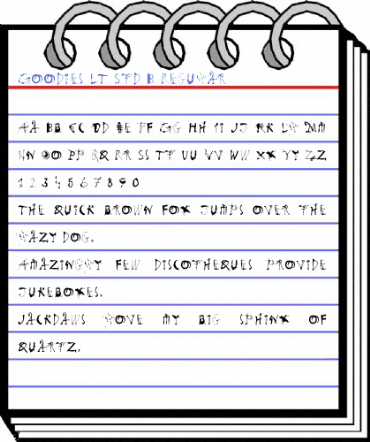 GOODIES LT STD B REGULAR
AA BB CC DD EE FF GG HH II JJ KK LL MM
NN OO PP QQ RR SS TT UU VV WW XX YY ZZ
1 2 3 4 5 6 7 8 9 0
THE QUICK BROWN FOX JUMPS OVER THE
LAZY DOG.
AMAZINGLY FEW DISCOTHEQUES PROVIDE
JUKEBOXES.
JACKDAWS LOVE MY BIG SPHINX OF
QUARTZ.